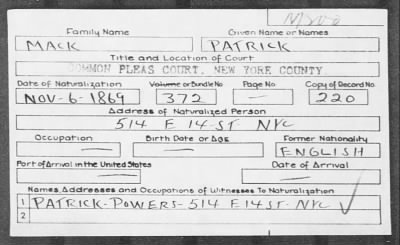 M200
Family Name Given Name or Names
MACK PATRICK
Title and Location of Court
COMMON PLEAS COURT, NEW YORK COUNTY
Date of Naturalization Volume or Bundle No Page No Copy of Record No
NOV-6-1869 372 - 220
Address of Naturalized Person
514 E 14 ST NYC
Occupation Birth Date or Age Former Nationality
- - ENGLISH
Port of Arrival in the United States Date of Arrival
- -
Names, Addresses and Occupations of Witnesses To Naturalization
1 PATRICK-POWERS-514 E 14 ST. NYC
2